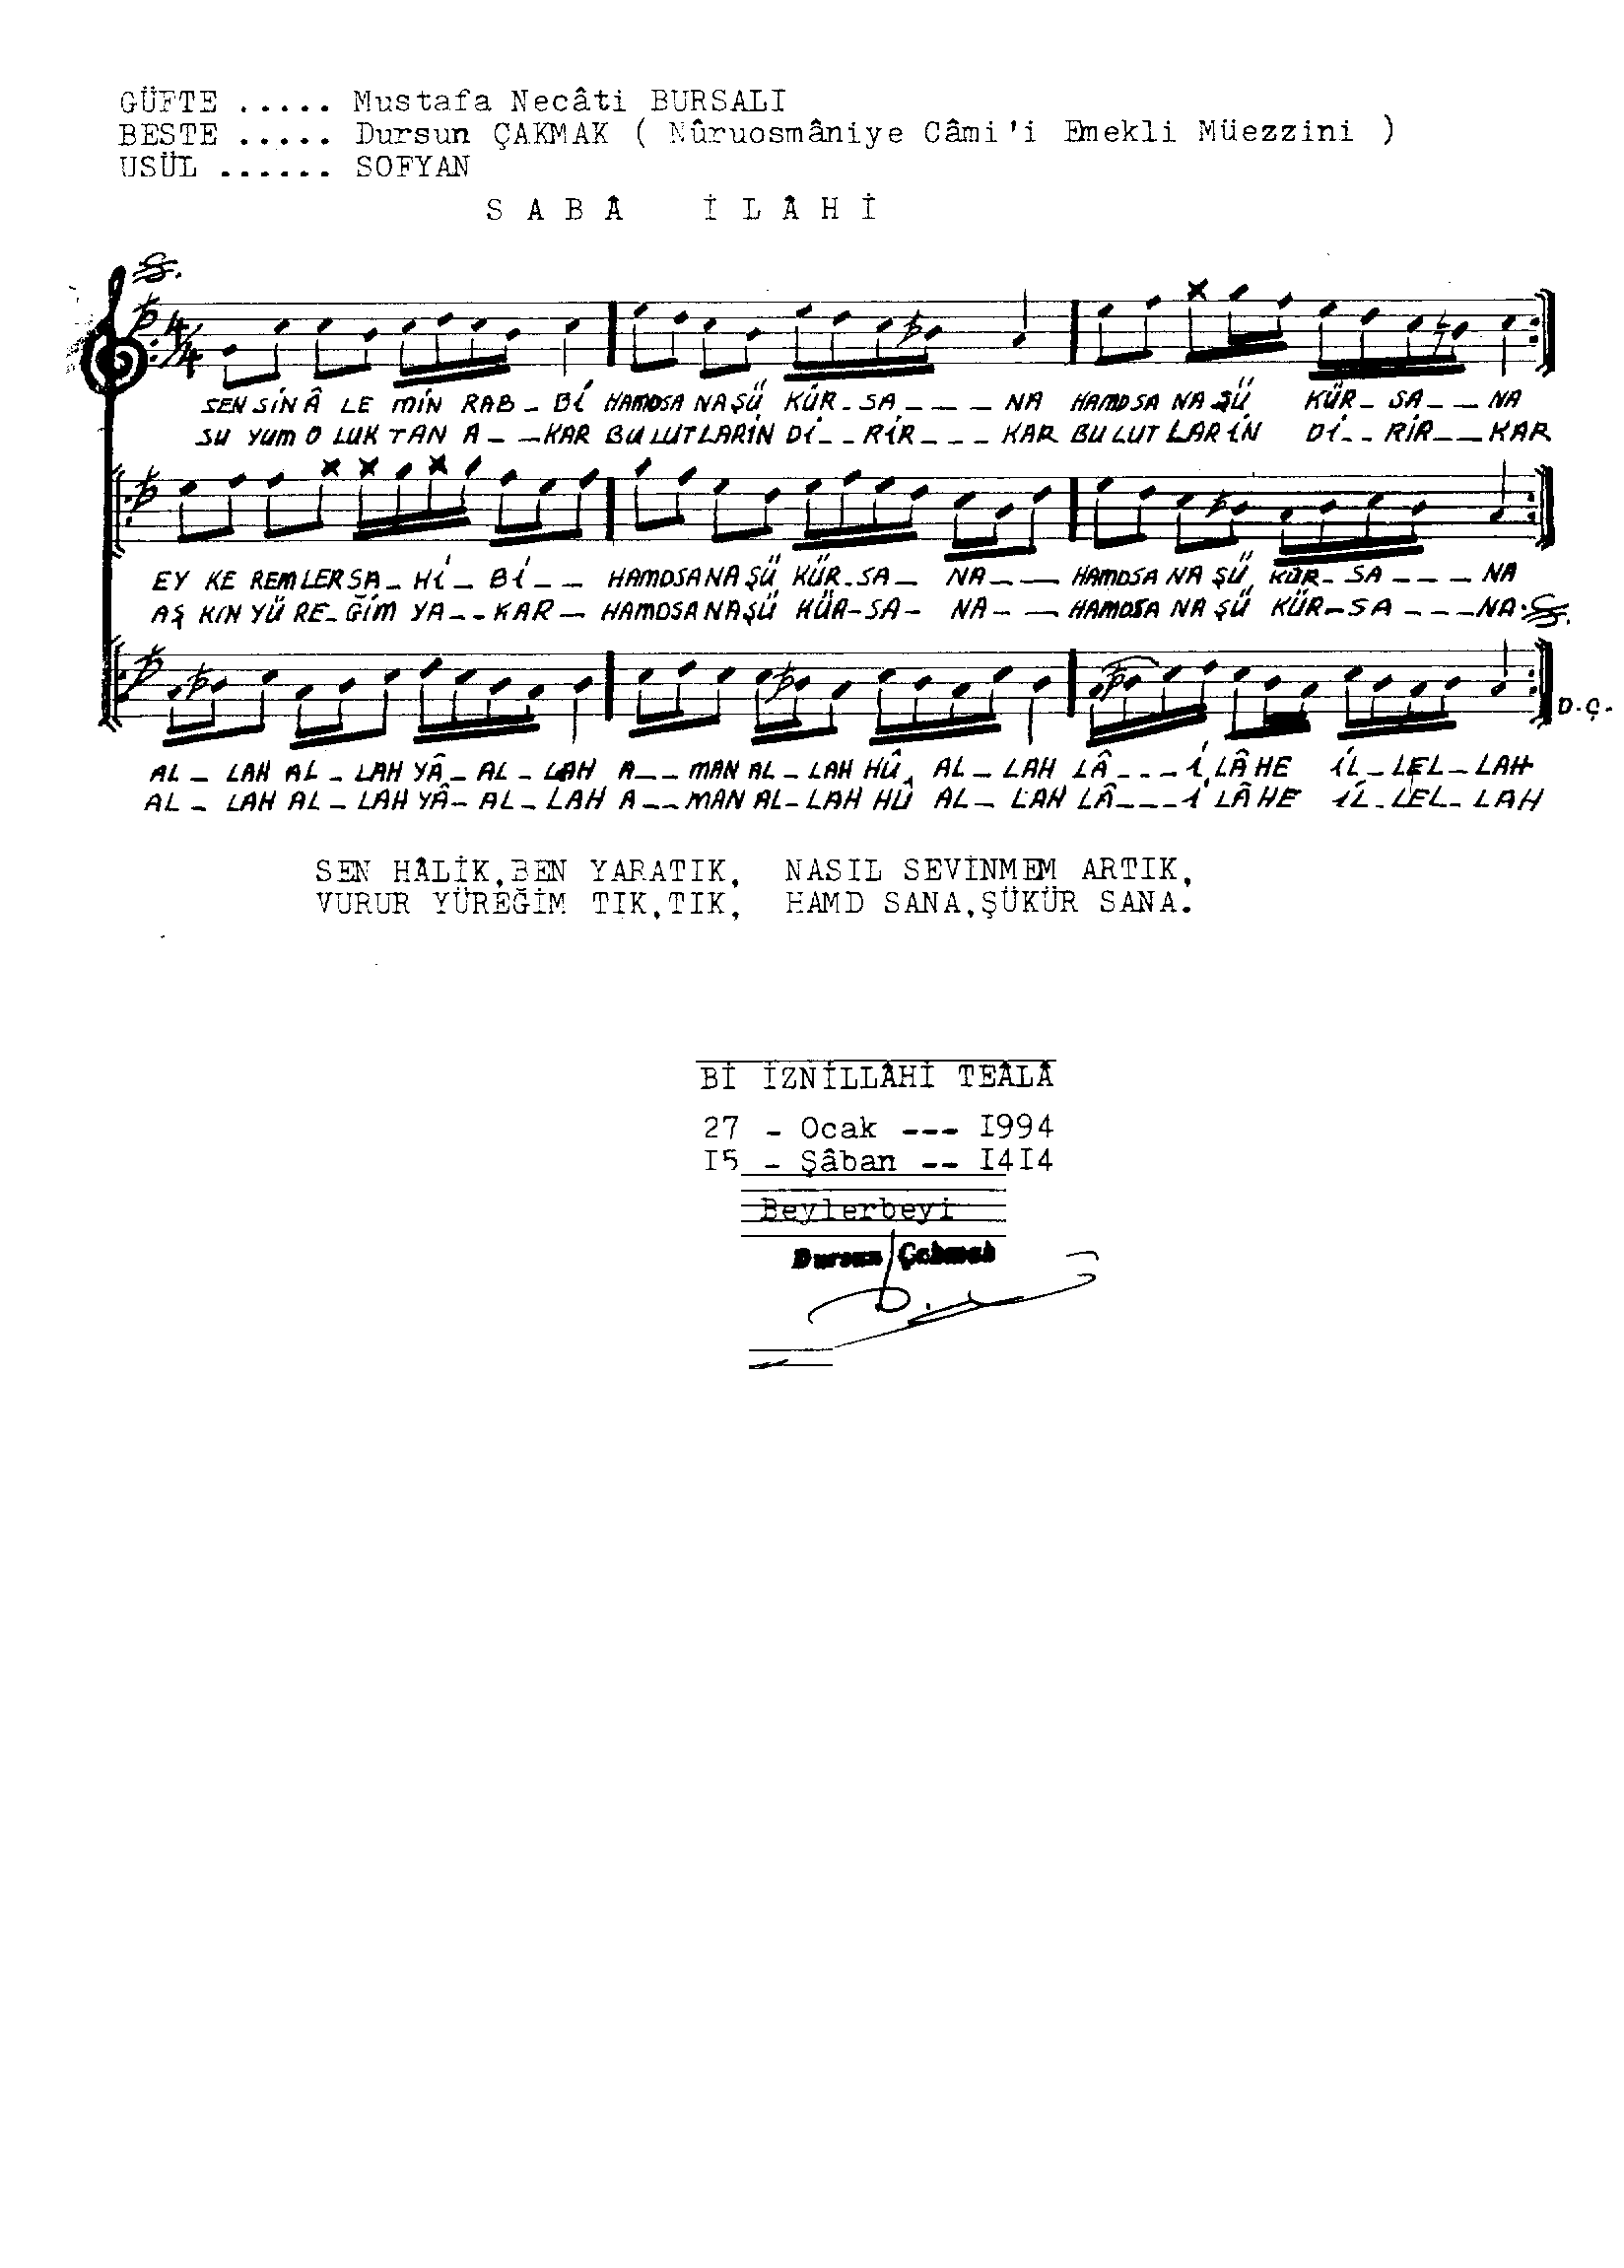 GÜFTE ..... Mustafa Necâti BURSALI
BESTE ..... Dursun ÇAKMAK ( Nûruosmâniye Câmi'i Emekli Müezzini )
USÜL ...... SOFYAN
SABÂ İLÂHİ
4/4
SEN SİN Â LE MİN RAB - Bİ HAMDSA NA ŞÜ KÜR - SA - - - NA HAMDSA NA ŞÜ KÜR - SA - - NA
SU YUM O LUK TAN A - - KAR BU LUT LARİN Dİ - - RİR - - - KAR BU LUT LARİN Dİ - - RİR - - KAR
EY KE REMLER SA - Hİ - Bİ - - HAMDSA NA ŞÜ KÜR - SA - NA - - HAMDSA NA ŞÜ KÜR - SA - - - NA
AŞ KIN YÜ RE - ĞİM YA - - KAR - HAMDSA NA ŞÜ KÜR - SA - NA - - HAMDSA NA ŞÜ KÜR - SA - - - NA
D.Ç.
AL - LAH AL - LAH YÂ - AL - LAH A - - MAN AL - LAH HÛ AL - LAH LÂ - - - İ LÂHE İL - LEL - LAH
AL - LAH AL - LAH YÂ - AL - LAH A - - MAN AL - LAH HÛ AL - LAH LÂ - - - İ LÂHE İL - LEL - LAH
SEN HÂLİK,BEN YARATIK, NASIL SEVİNMEM ARTIK,
VURUR YÜREĞİM TIK,TIK, HAMD SANA,ŞÜKÜR SANA.
Bİ İZNİLLÂHİ TEÂLÂ
27 - Ocak --- I994
I5 - Şâban -- I4I4
Beylerbeyi
Dursun Çakmak